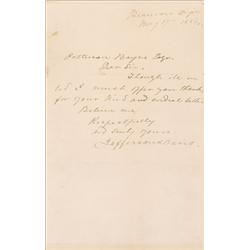 Beauvoir
May
Patterson Bayne Esq.
Dear Sir,
Though
I much offer you thanks
for your kind and cordial letter.
Believe me
Respectfully
and truly yours
Jefferson Davis.